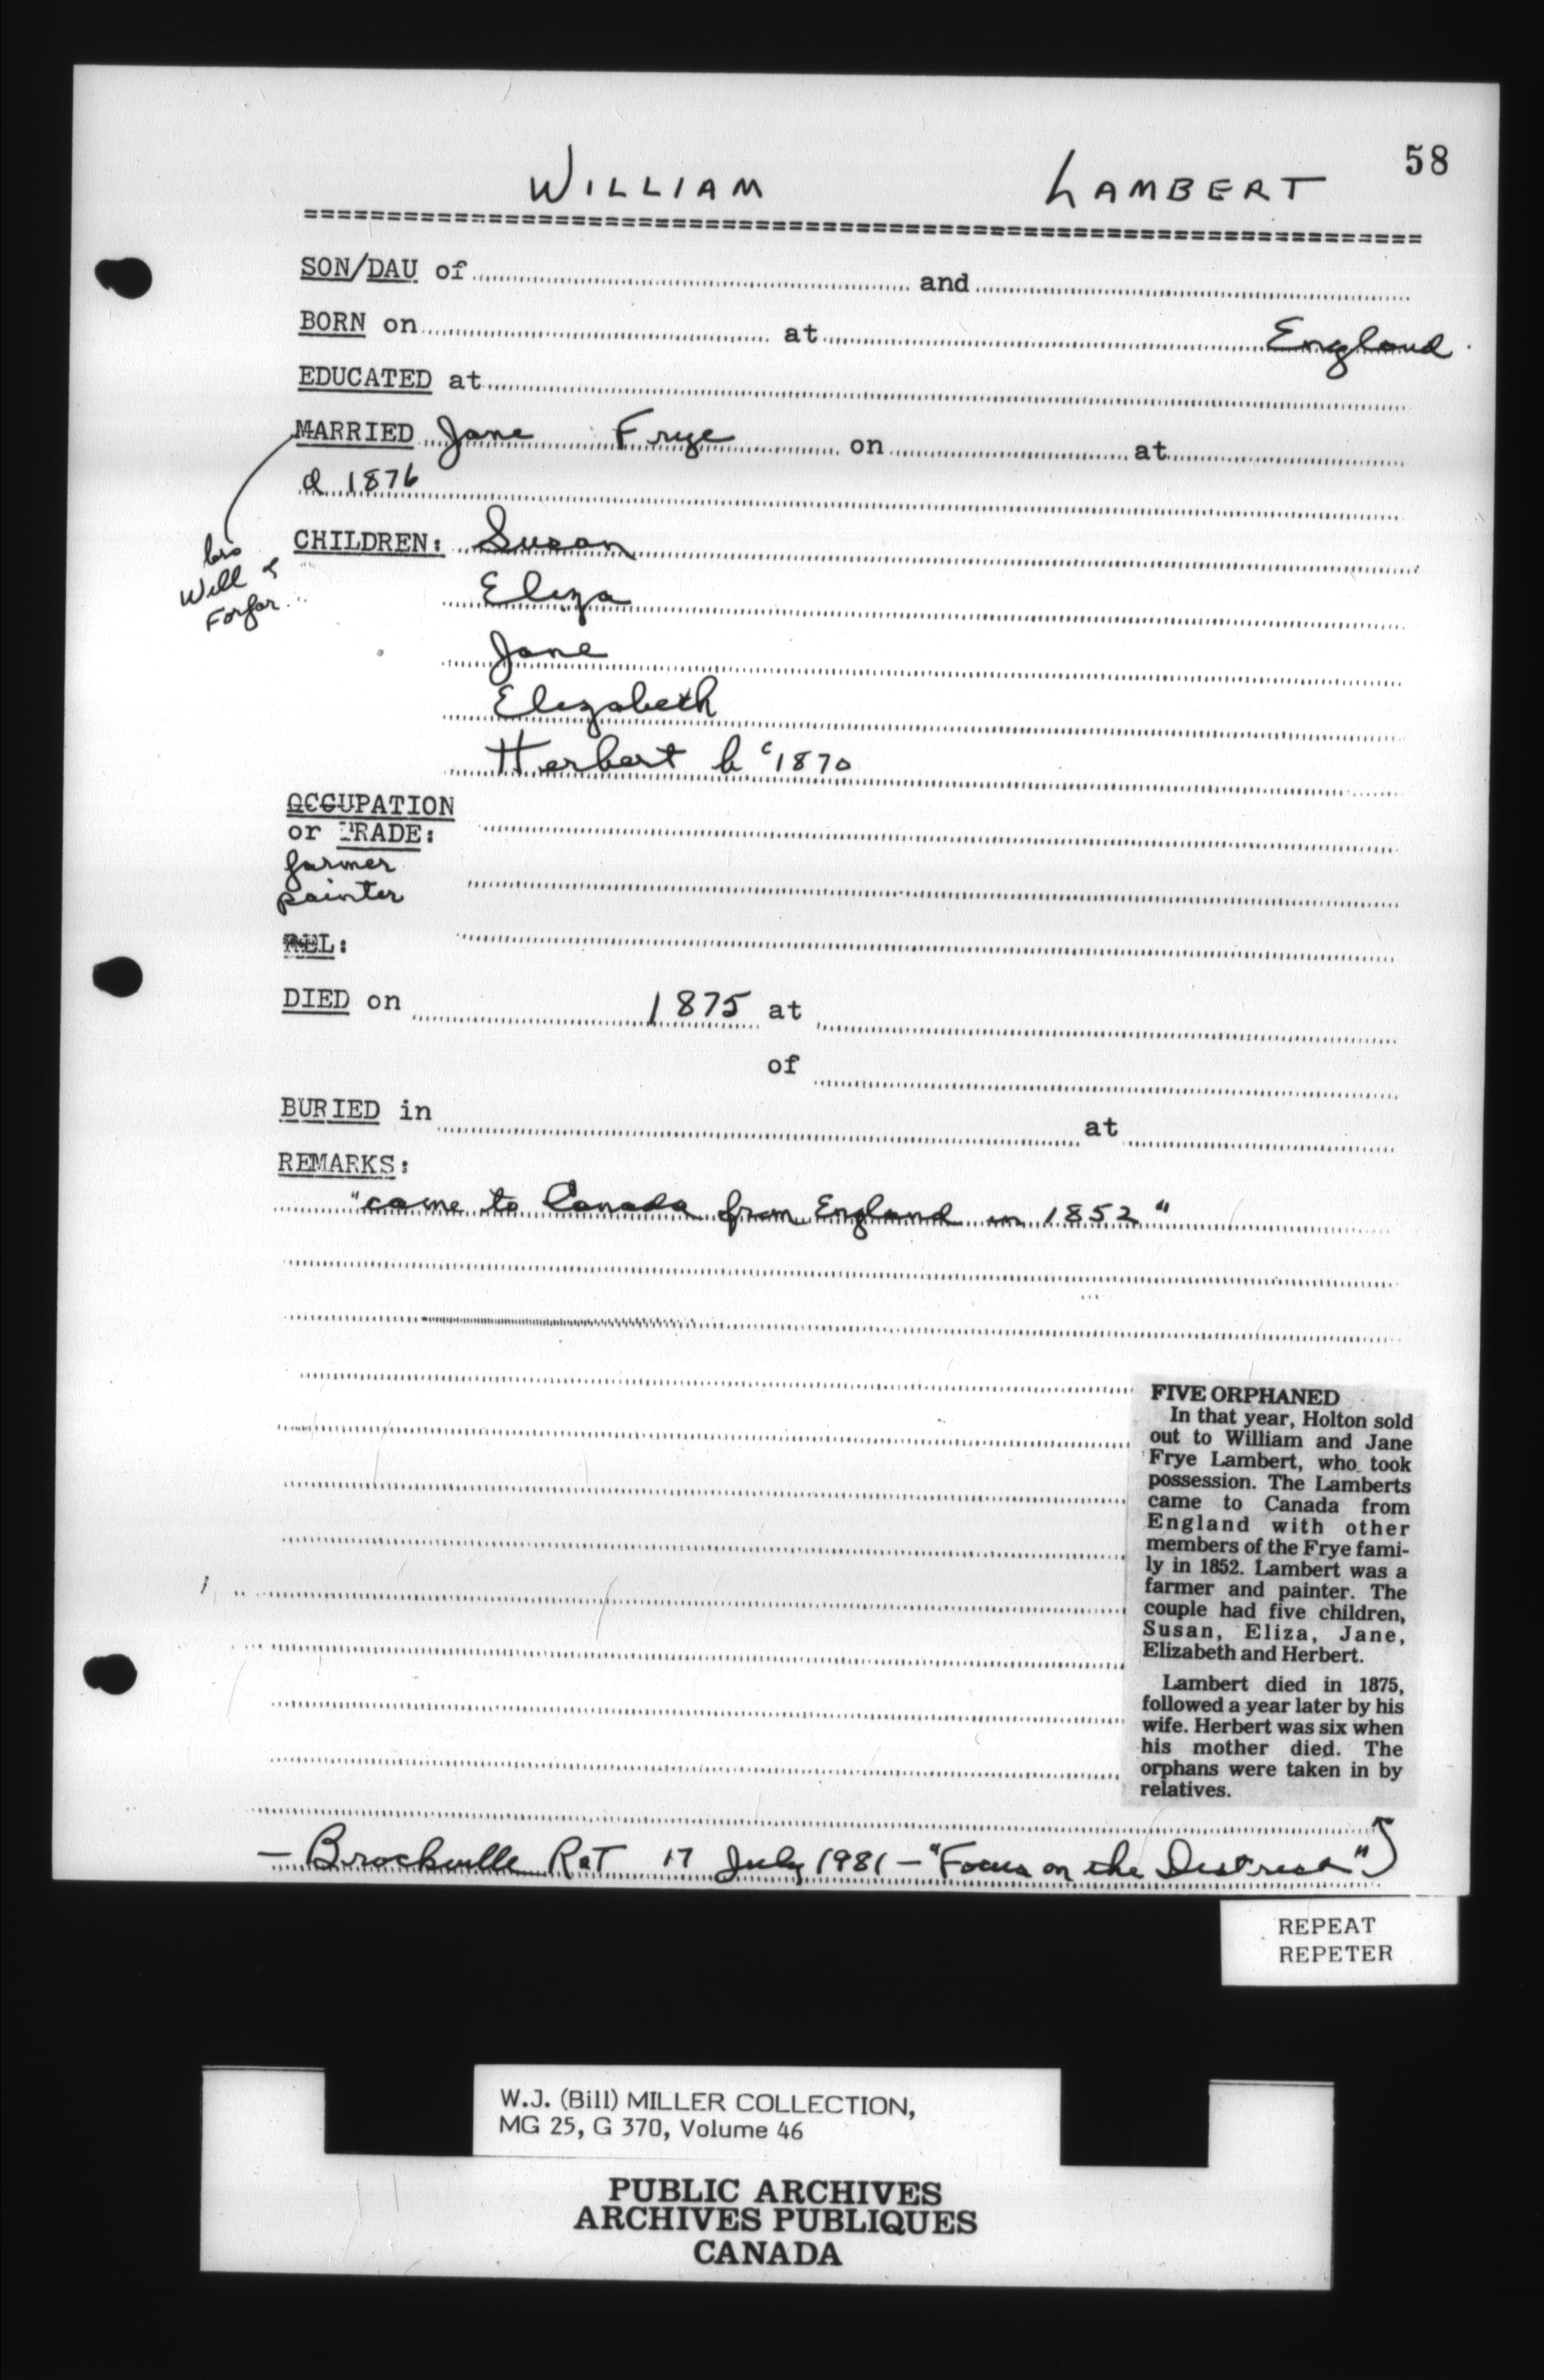 58
WILLIAM LAMBERT
SON/DAU of and
BORN on at England
EDUCATED at
MARRIED Jane Frye on at
d 1876
bro
Will of
Forfar
CHILDREN: Susan
Eliza
Jane
Elizabeth
Herbert b c1870
OCCUPATION
or TRADE:
farmer
painter
REL:
DIED on 1875 at
of
BURIED in at
REMARKS:
"came to Canada from England in 1852"
FIVE ORPHANED
In that year, Holton sold
out to William and Jane
Frye Lambert, who took
possession. The Lamberts
came to Canada from
England with other
members of the Frye fami-
ly in 1852. Lambert was a
farmer and painter. The
couple had five children,
Susan, Eliza, Jane,
Elizabeth and Herbert.
Lambert died in 1875,
followed a year later by his
wife. Herbert was six when
his mother died. The
orphans were taken in by
relatives.
— Brockville R&T 17 July 1981 — "Focus on the District"
REPEAT
REPETER
W.J. (Bill) MILLER COLLECTION,
MG 25, G 370, Volume 46
PUBLIC ARCHIVES
ARCHIVES PUBLIQUES
CANADA